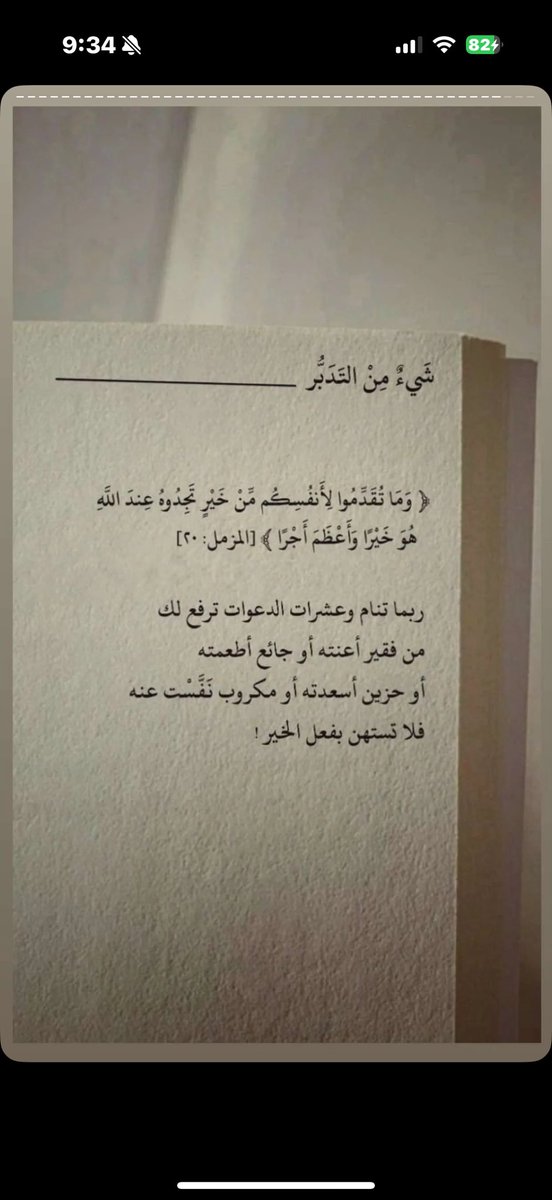 9:34
82
شَيءٌ مِنْ التَدَبُّر
﴿ وَمَا تُقَدِّمُوا لِأَنفُسِكُم مِّنْ خَيْرٍ تَجِدُوهُ عِندَ اللَّهِ
هُوَ خَيْرًا وَأَعْظَمَ أَجْرًا ﴾ [المزمل: ٢٠]
ربما تنام وعشرات الدعوات ترفع لك
من فقير أعنته أو جائع أطعمته
أو حزين أسعدته أو مكروب نَفَّسْت عنه
فلا تستهن بفعل الخير !